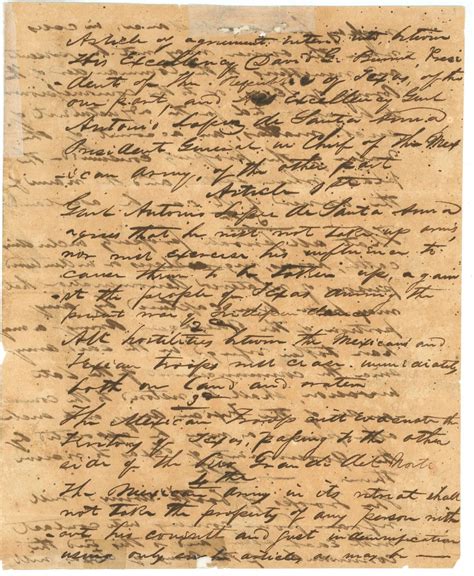 Article of agreement entered into between
His Excellency David G. Burnet Presi
dent of the Republic of Texas of the
one part, and His Excellency Genl
Antonio Lopez de Santa Anna
President General in Chief of the Mex
ican army, of the other part
Article 1st
Genl Antonio Lopez de Santa Anna
agrees that he will not take up arms
nor will exercise his influence to
cause them to be taken up again
st the people of Texas during the
present war of Independence
2d
All hostilities between the Mexican and
Texian troops will cease immediately
both on land and water
3d
The Mexican Troops will evacuate the
Territory of Texas, passing to the other
side of the Rio Grande del Norte
4th
The Mexican Army in its retreat shall
not take the property of any person with
out his consent and just indemnification
using only such articles as may be